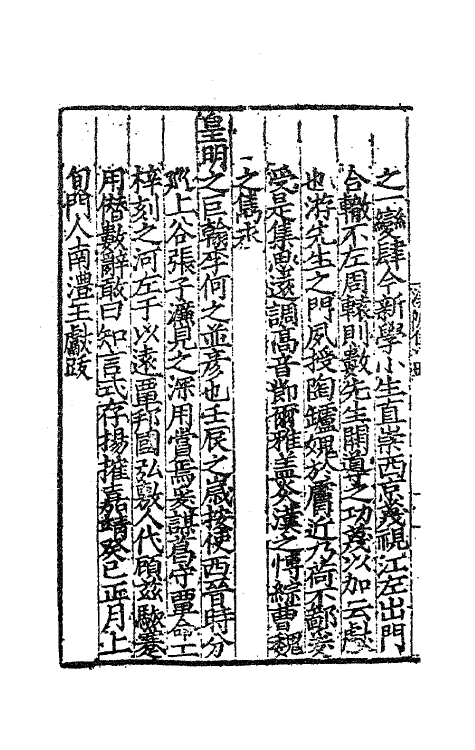 之一變肆今新學小生直崇西京蔑視江左出門
合轍不左周轅則數先生開導之功蔑以加云獻
也游先生之門夙授陶鑪媿於膚近乃荷不鄙
受是集思遠調高音節爾雅蓋炎漢之博綜曹魏
之雋永
皇明之巨翰李何之並彥也壬辰之歲使西晉時分
上谷張子濂見之深用賞焉爰謀爲守覃命工
梓刻之河左于以遠覃邦國弘敷人代顧茲駑蹇
用暦數辭敢曰知言式存揚搉嘉靖癸巳正月上
旬門人南澧王獻跋